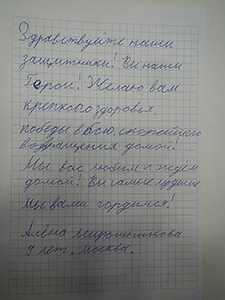 Здравствуйте наши
защитники! Вы наши
Герои! Желаю вам
крепкого здоровья,
победы в бою, скорейшего
возвращения домой!
Мы вас любим и ждём
домой! Вы самые лучшие
Мы вами гордимся!
Алёна
9 лет. Москва.